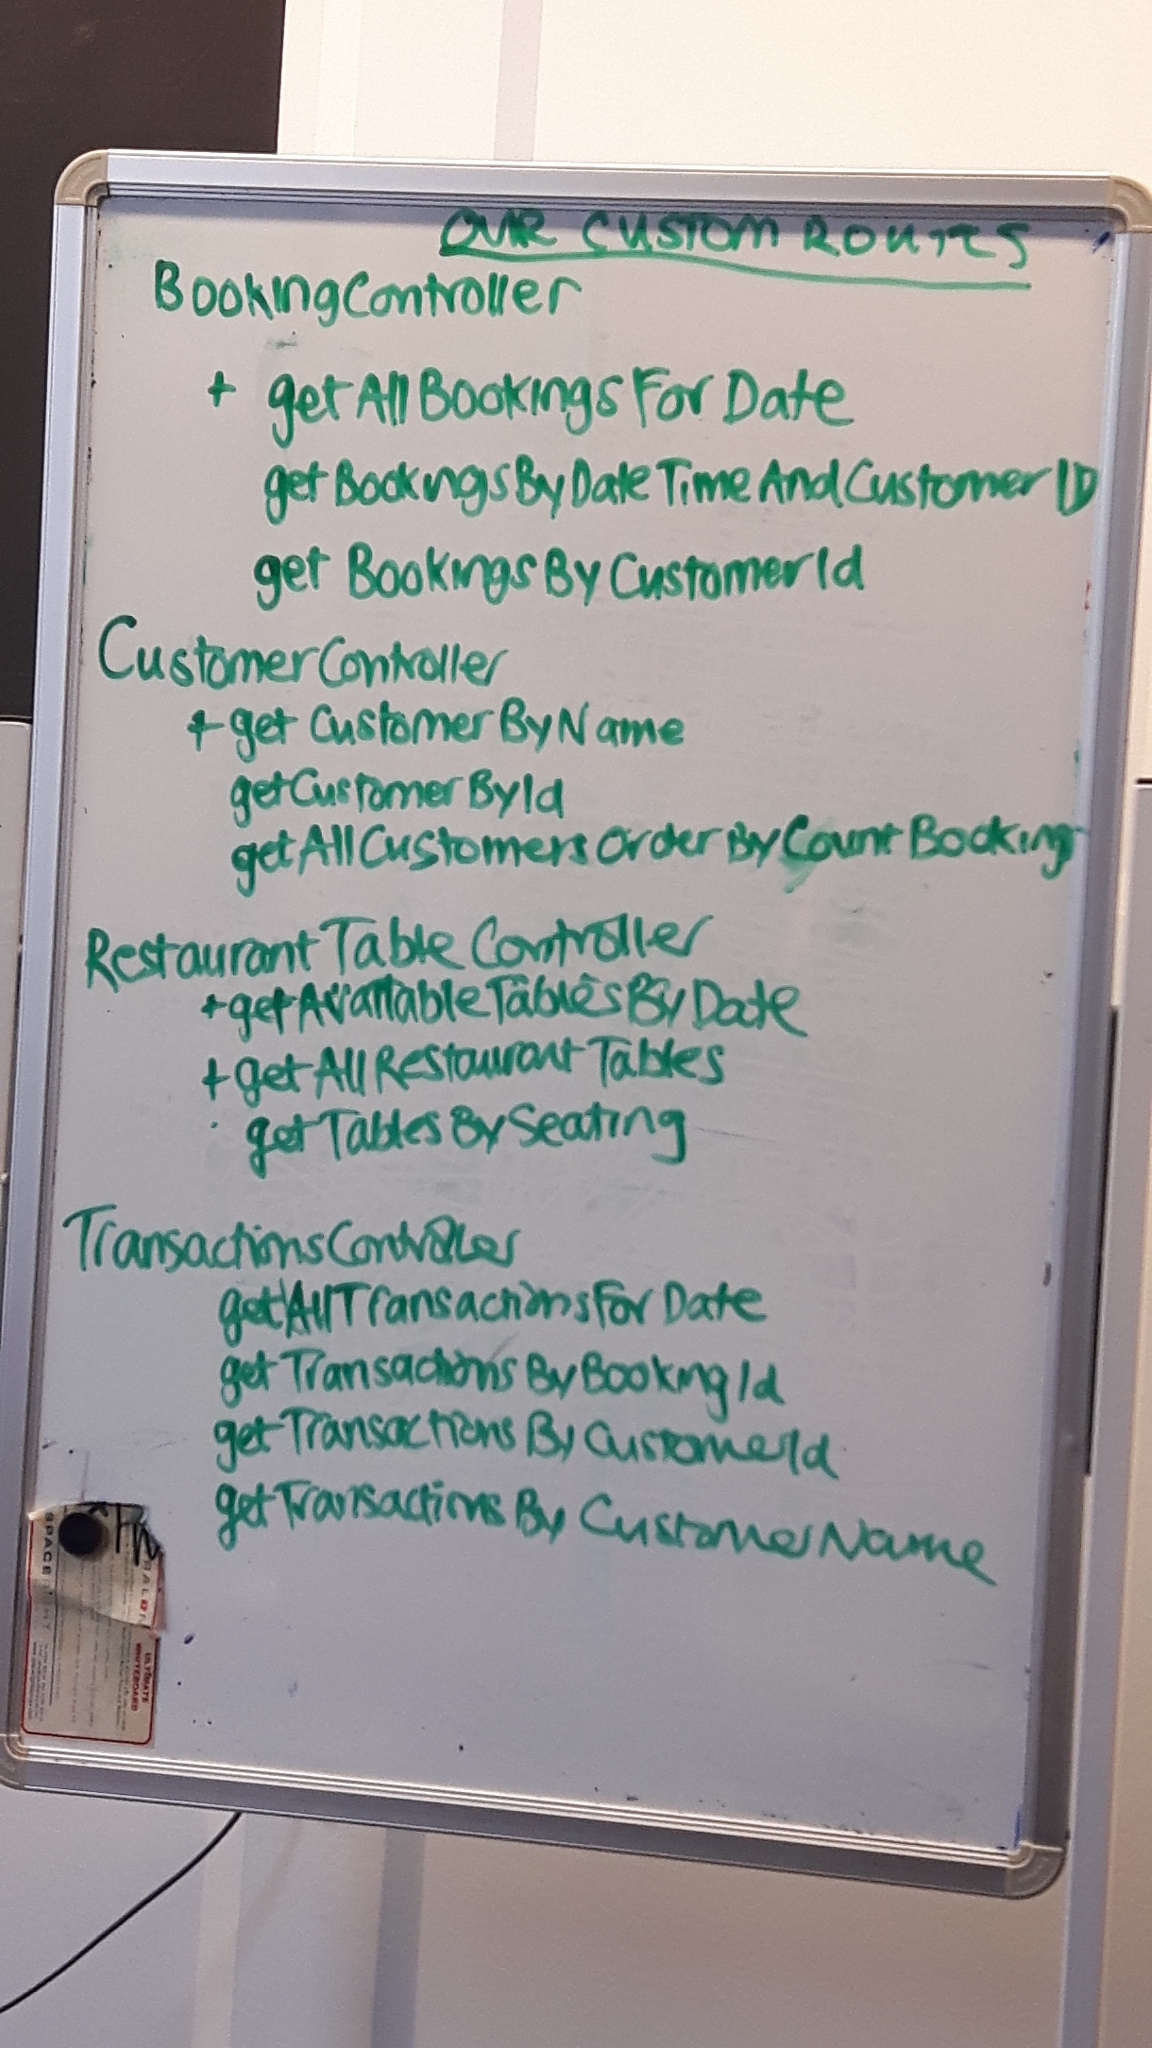 OUR CUSTOM ROUTES
BookingController
+ getAllBookingsForDate
getBookingsByDateTimeAndCustomerID
get BookingsByCustomerId
CustomerController
+ get CustomerByName
getCustomerById
getAllCustomersOrderByCountBooking
RestaurantTableController
+ getAvailableTablesByDate
+ getAllRestaurantTables
getTablesBySeating
TransactionsController
getAllTransactionsForDate
getTransactionsByBookingId
getTransactions By CustomerId
getTransactions By CustomerName
SPACE
ULTIMATE
WHITEBOARD